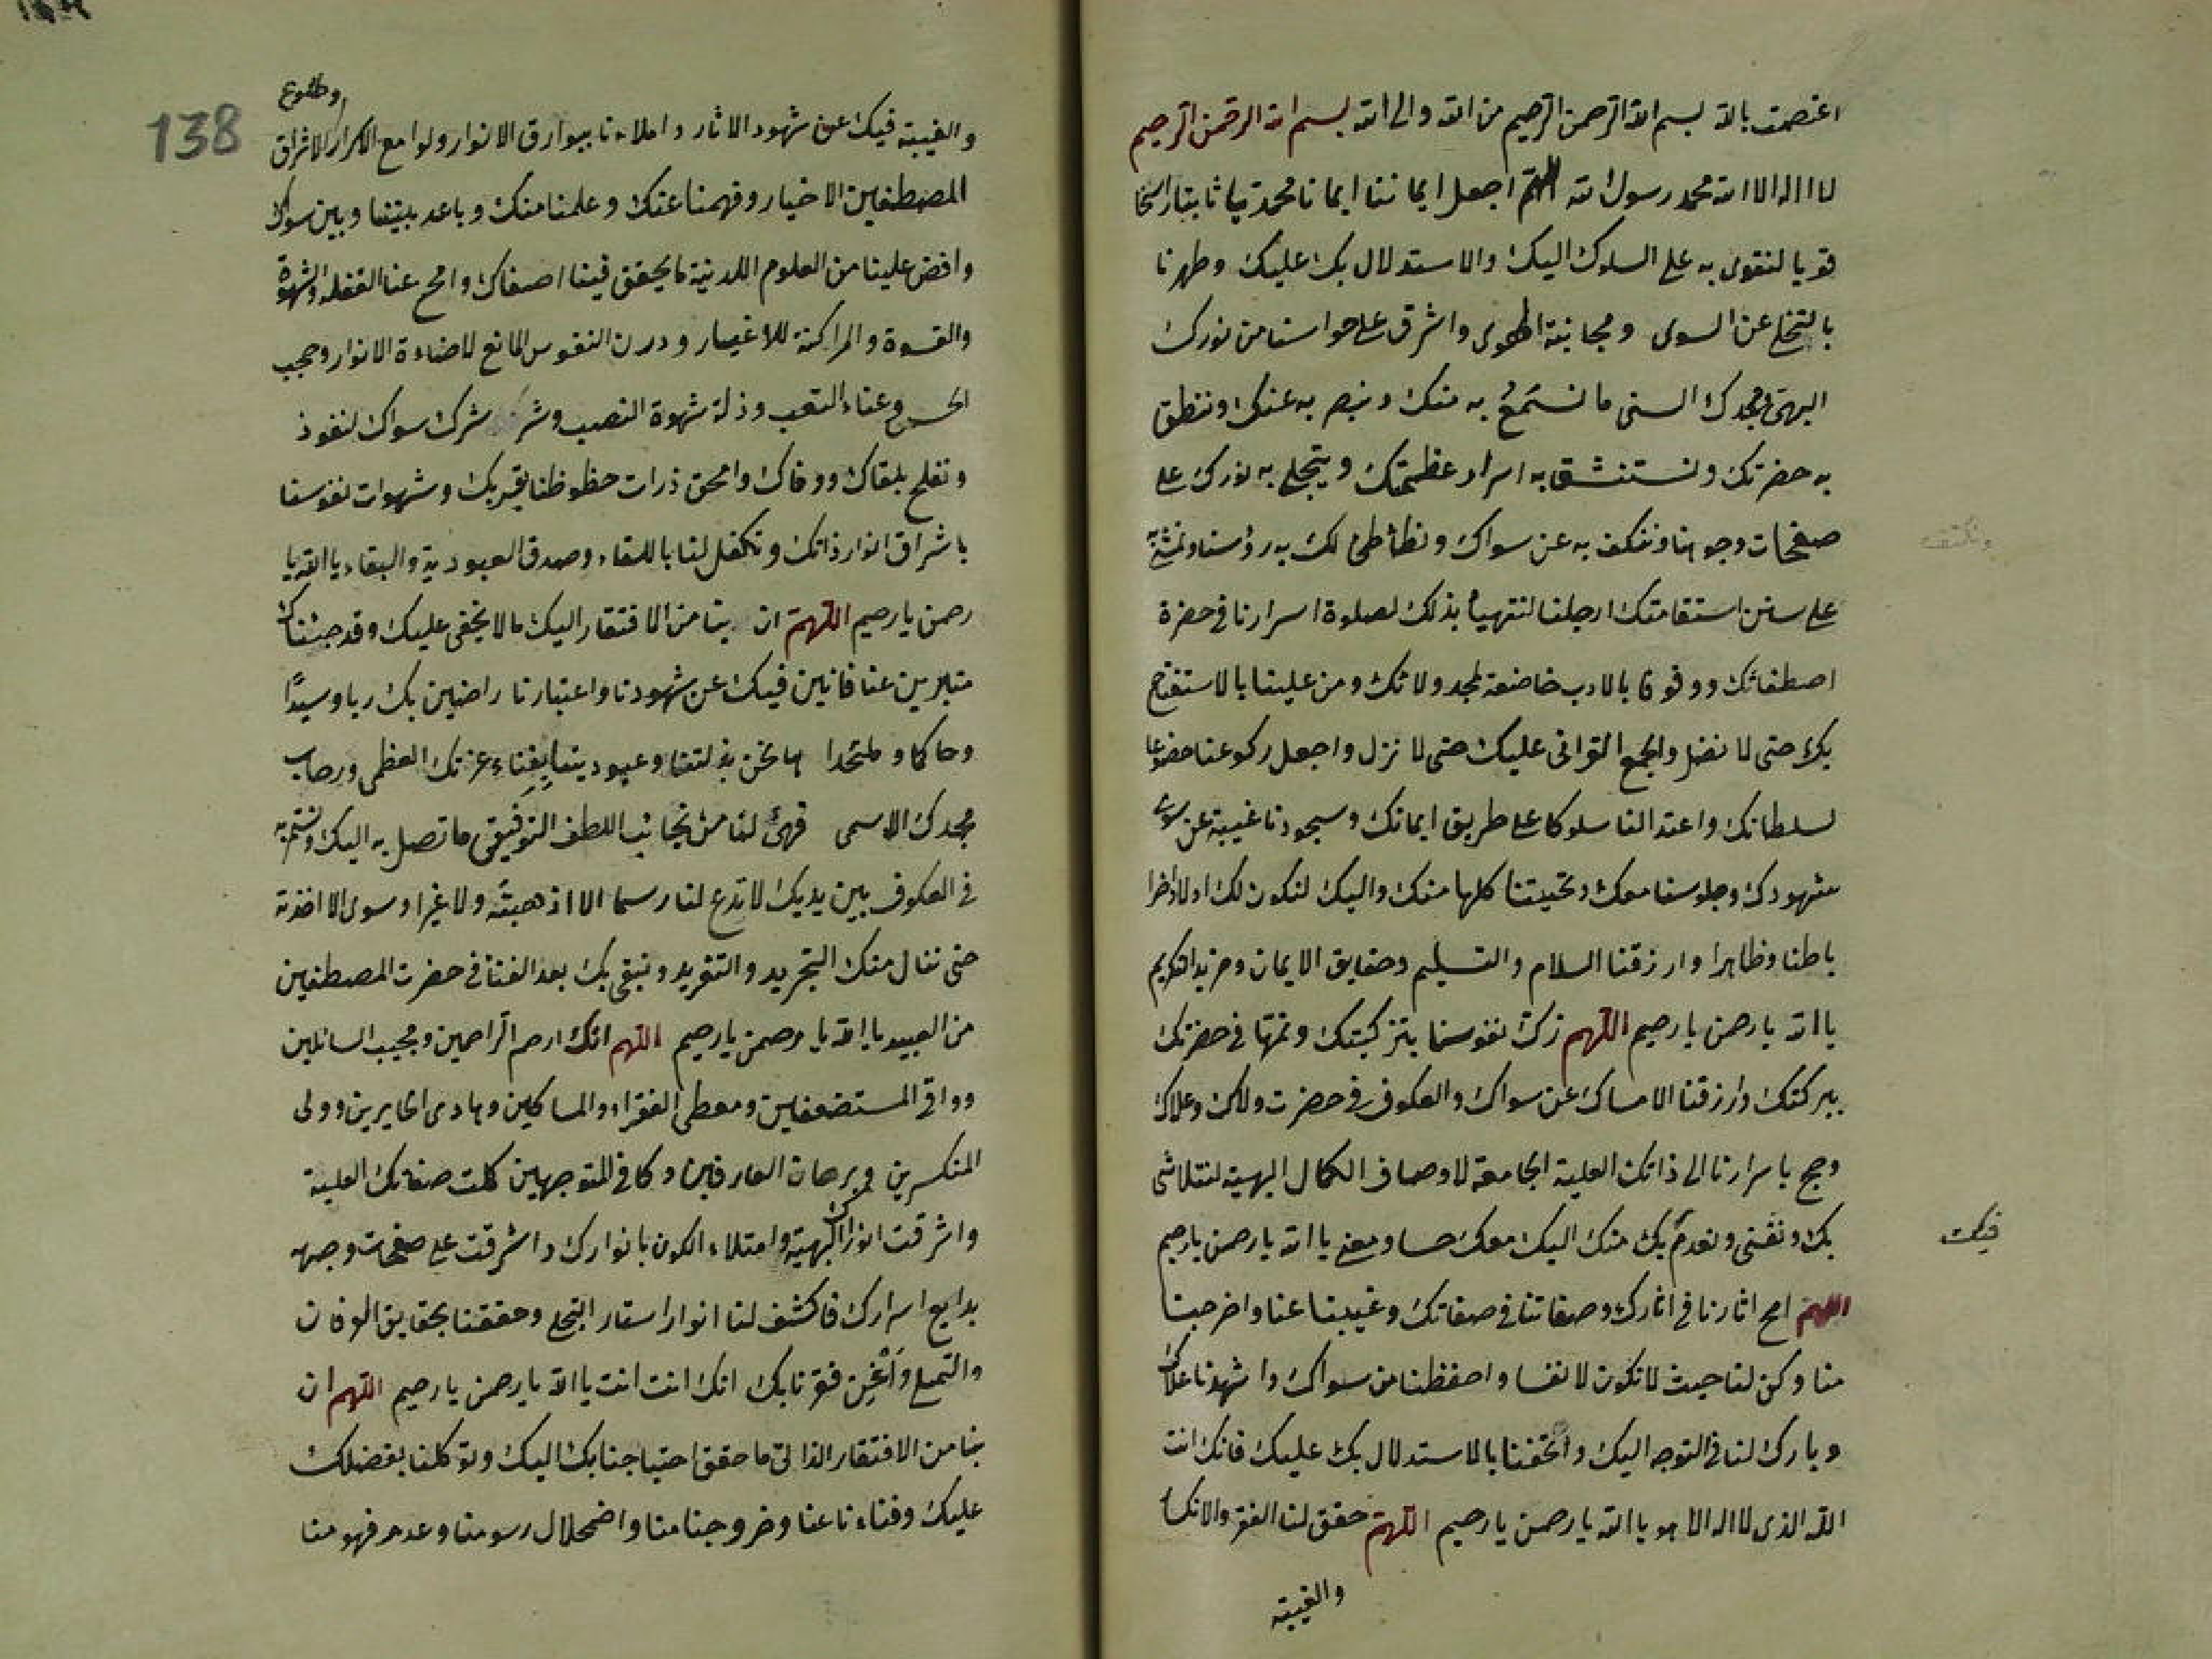 اعتصمت بالله بسم الله الرحمن الرحيم من الله والى الله بسم الله الرحمن الرحيم
لا اله الا الله محمد رسول الله اللهم اجعل ايماننا ايمانا محمديا ثابتا راسخا
قويا لنقوى به على السلوك اليك والاستدلال بك عليك وطهرنا
بالتخلي عن السوى ومجانبة الهوى واشرق على حواسنا من نورك
البهي ومجدك السنى ما نستمع به منك ونبصر به عنك وننطق
به حضرتك ونستنشق به اسرار عظمتك ويتجلى به نورك على
صفحات وجوهنا وننكف به عن سواك ونطأطئ لك به رؤسنا ونمشي
على سنن استقامتك ارجلنا لنتهيأ بذلك لصلوة اسرارنا في حضرة
اصطفائك ووقوفا بالادب خاضعة لمجد ولائك ومن علينا بالاستفتاح
بك حتى لا نضل والجمع القرانى عليك حتى لا نزل واجعل ركوعنا خضوعا
لسلطانك واعتدالنا سلوكا على طريق ايمانك وسجودنا غيبة عن سوى
شهودك وجلوسنا معك وتحيتنا كلها منك واليك لنكون لك اولا واخرا
باطنا وظاهرا وارزقنا السلام والتسليم وحقايق الايمان ومزيد التكريم
يا الله يا رحمن يا رحيم اللهم زك نفوسنا بتزكيتك ونمها في حضرتك
ببركتك وارزقنا الامساك عن سواك والعكوف في حضرت ولاك وعلاك
وحج باسرارنا الى ذاتك العلية الجامعة لاوصاف الكمال البهية لنتلاشى
بك ونفنى ونعدم بك منك اليك معك حسا ومعنى يا الله يا رحمن يا رحيم
فيك
اللهم امح اثارنا في اثارك وصفاتنا في صفاتك وغيبنا عنا واخرجنا
منا وكن لنا حيث لا نكون لانفسنا واحفظنا من سواك واشهدنا علاك
وبارك لنا في التوجه اليك واتحفنا بالاستدلال بك عليك فانك انت
الله الذى لا اله الا هو يا الله يا رحمن يا رحيم اللهم حقق لنا الفقر والانكسار
والغيبة
138
وطلوع
والغيبة فيك عن شهود الاثار واملاءنا ببوارق الانوار ولوامع الاسرار لاشراق
المصطفين الاخيار وفهمنا عنك وعلمنا منك وباعد بيننا وبين سواك
وافض علينا من العلوم اللدنية ما يحقق فينا اصفاك وامح عنا الغفلة والشهوة
والقسوة والمراكنة للاغيار ودرن النفوس المانع لاضاءة الانوار وحجب
الحس وعناء التعب وذلة شهوة النصب وشر شرك سواك لنفوذ
ونفلح بلقاك ووفاك وامحق ذرات حظوظنا بقربك وشهوات نفوسنا
باشراق انوار ذاتك وتكفل لنا باللقاء وصدق العبودية والبقاء يا الله يا
رحمن يا رحيم اللهم ان بنا من الافتقار اليك ما لا يخفى عليك وقد جئناك
متبرين عنا فانين فيك عن شهودنا واعتبارنا راضين بك ربا وسيدا
وحاكما وملتحدا ها نحن بذلتنا وعبوديتنا بفناء عزتك العظمى ورحاب
مجدك الاسمى فهئ لنا من نجائب اللطف التوفيقى ما نصل به اليك ونستمر به
في العكوف بين يديك لا تدع لنا رسما الا اذهبته ولا غيرا وسوى الا اخذته
حتى ننال منك التجريد والتفريد ونبقى بك بعد الفنا في حضرت المصطفين
من العبيد يا الله يا رحمن يا رحيم اللهم انك ارحم الراحمين ومجيب السائلين
وواقى المستضعفين ومعطى الفقراء والمساكين وهادى الحايرين وولى
المنكسرين وبرهان العارفين وكافى المتوجهين كملت صفاتك العلية
واشرقت انوارك البهية وامتلاء الكون بانوارك واشرقت على صفحات وجهه
بدايع اسرارك فاكشف لنا انوار استار التجلى وحققنا بحقايق العرفان
والتملى واغن فقرنا بك انك انت انت يا الله يا رحمن يا رحيم اللهم ان
بنا من الافتقار الذاتى ما حقق احتياجنا بك اليك وتوكلنا بفضلك
عليك وفناءنا عنا وخروجنا منا واضمحلال رسومنا وعدم فهومنا